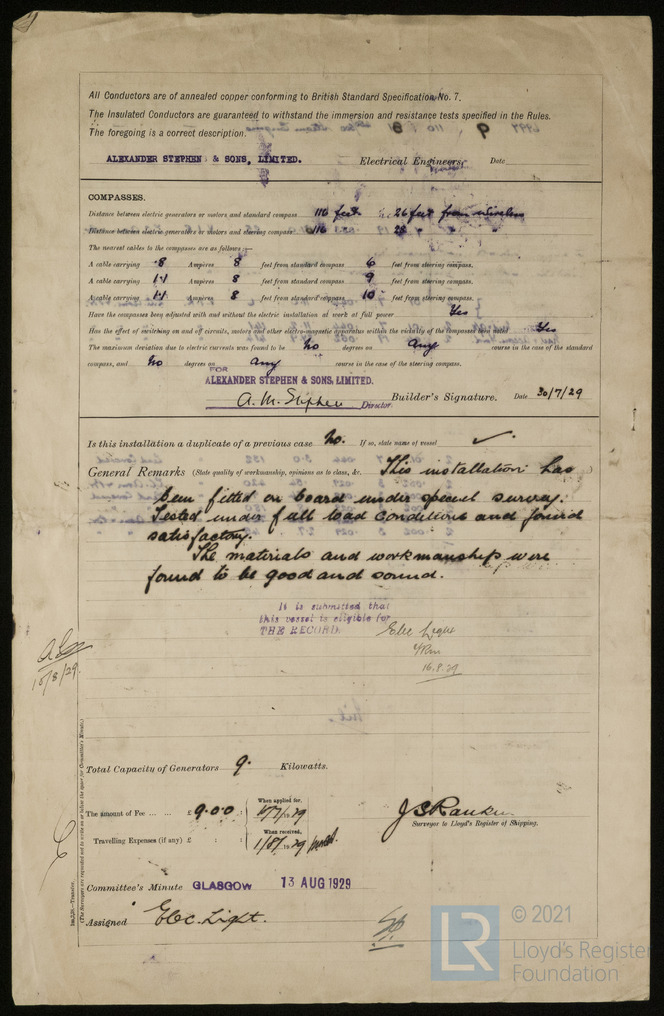 All Conductors are of annealed copper conforming to British Standard Specification No. 7.
The Insulated Conductors are guaranteed to withstand the immersion and resistance tests specified in the Rules.
The foregoing is a correct description.
ALEXANDER STEPHEN & SONS, LIMITED. Electrical Engineers. Date
COMPASSES.
Distance between electric generators or motors and standard compass 116 feet 26 feet from wireless
Distance between electric generators or motors and steering compass 116 28 " "
The nearest cables to the compasses are as follows:—
A cable carrying .8 Ampères 8 feet from standard compass 6 feet from steering compass.
A cable carrying 1.1 Ampères 8 feet from standard compass 9 feet from steering compass.
A cable carrying 1.1 Ampères 8 feet from standard compass 10 feet from steering compass.
Have the compasses been adjusted with and without the electric installation at work at full power Yes
Has the effect of switching on and off circuits, motors and other electro-magnetic apparatus within the vicinity of the compasses been noted Yes
The maximum deviation due to electric currents was found to be No degrees on any course in the case of the standard
compass, and No degrees on any course in the case of the steering compass.
FOR
ALEXANDER STEPHEN & SONS, LIMITED.
A. M. Stephen Director. Builder's Signature. Date 30/7/29
Is this installation a duplicate of a previous case No. If so, state name of vessel
General Remarks (State quality of workmanship, opinions as to class, &c. This installation has
been fitted on board under special survey.
Tested under full load conditions and found
satisfactory.
The materials and workmanship were
found to be good and sound.
It is submitted that
this vessel is eligible for
THE RECORD.
Elec Light
16.8.29
15/8/29.
Total Capacity of Generators 9. Kilowatts.
The amount of Fee ... ... £ 9.0.0 : When applied for, /7/1929
Travelling Expenses (if any) £ : : When received, 1/8/1929
J S Rankin
Surveyor to Lloyd's Register of Shipping.
Committee's Minute GLASGOW 13 AUG 1929
Assigned Elec. Light.
(The Surveyors are requested not to write on or below the space for Committee's Minute.)
LR © 2021
Lloyd's Register
Foundation